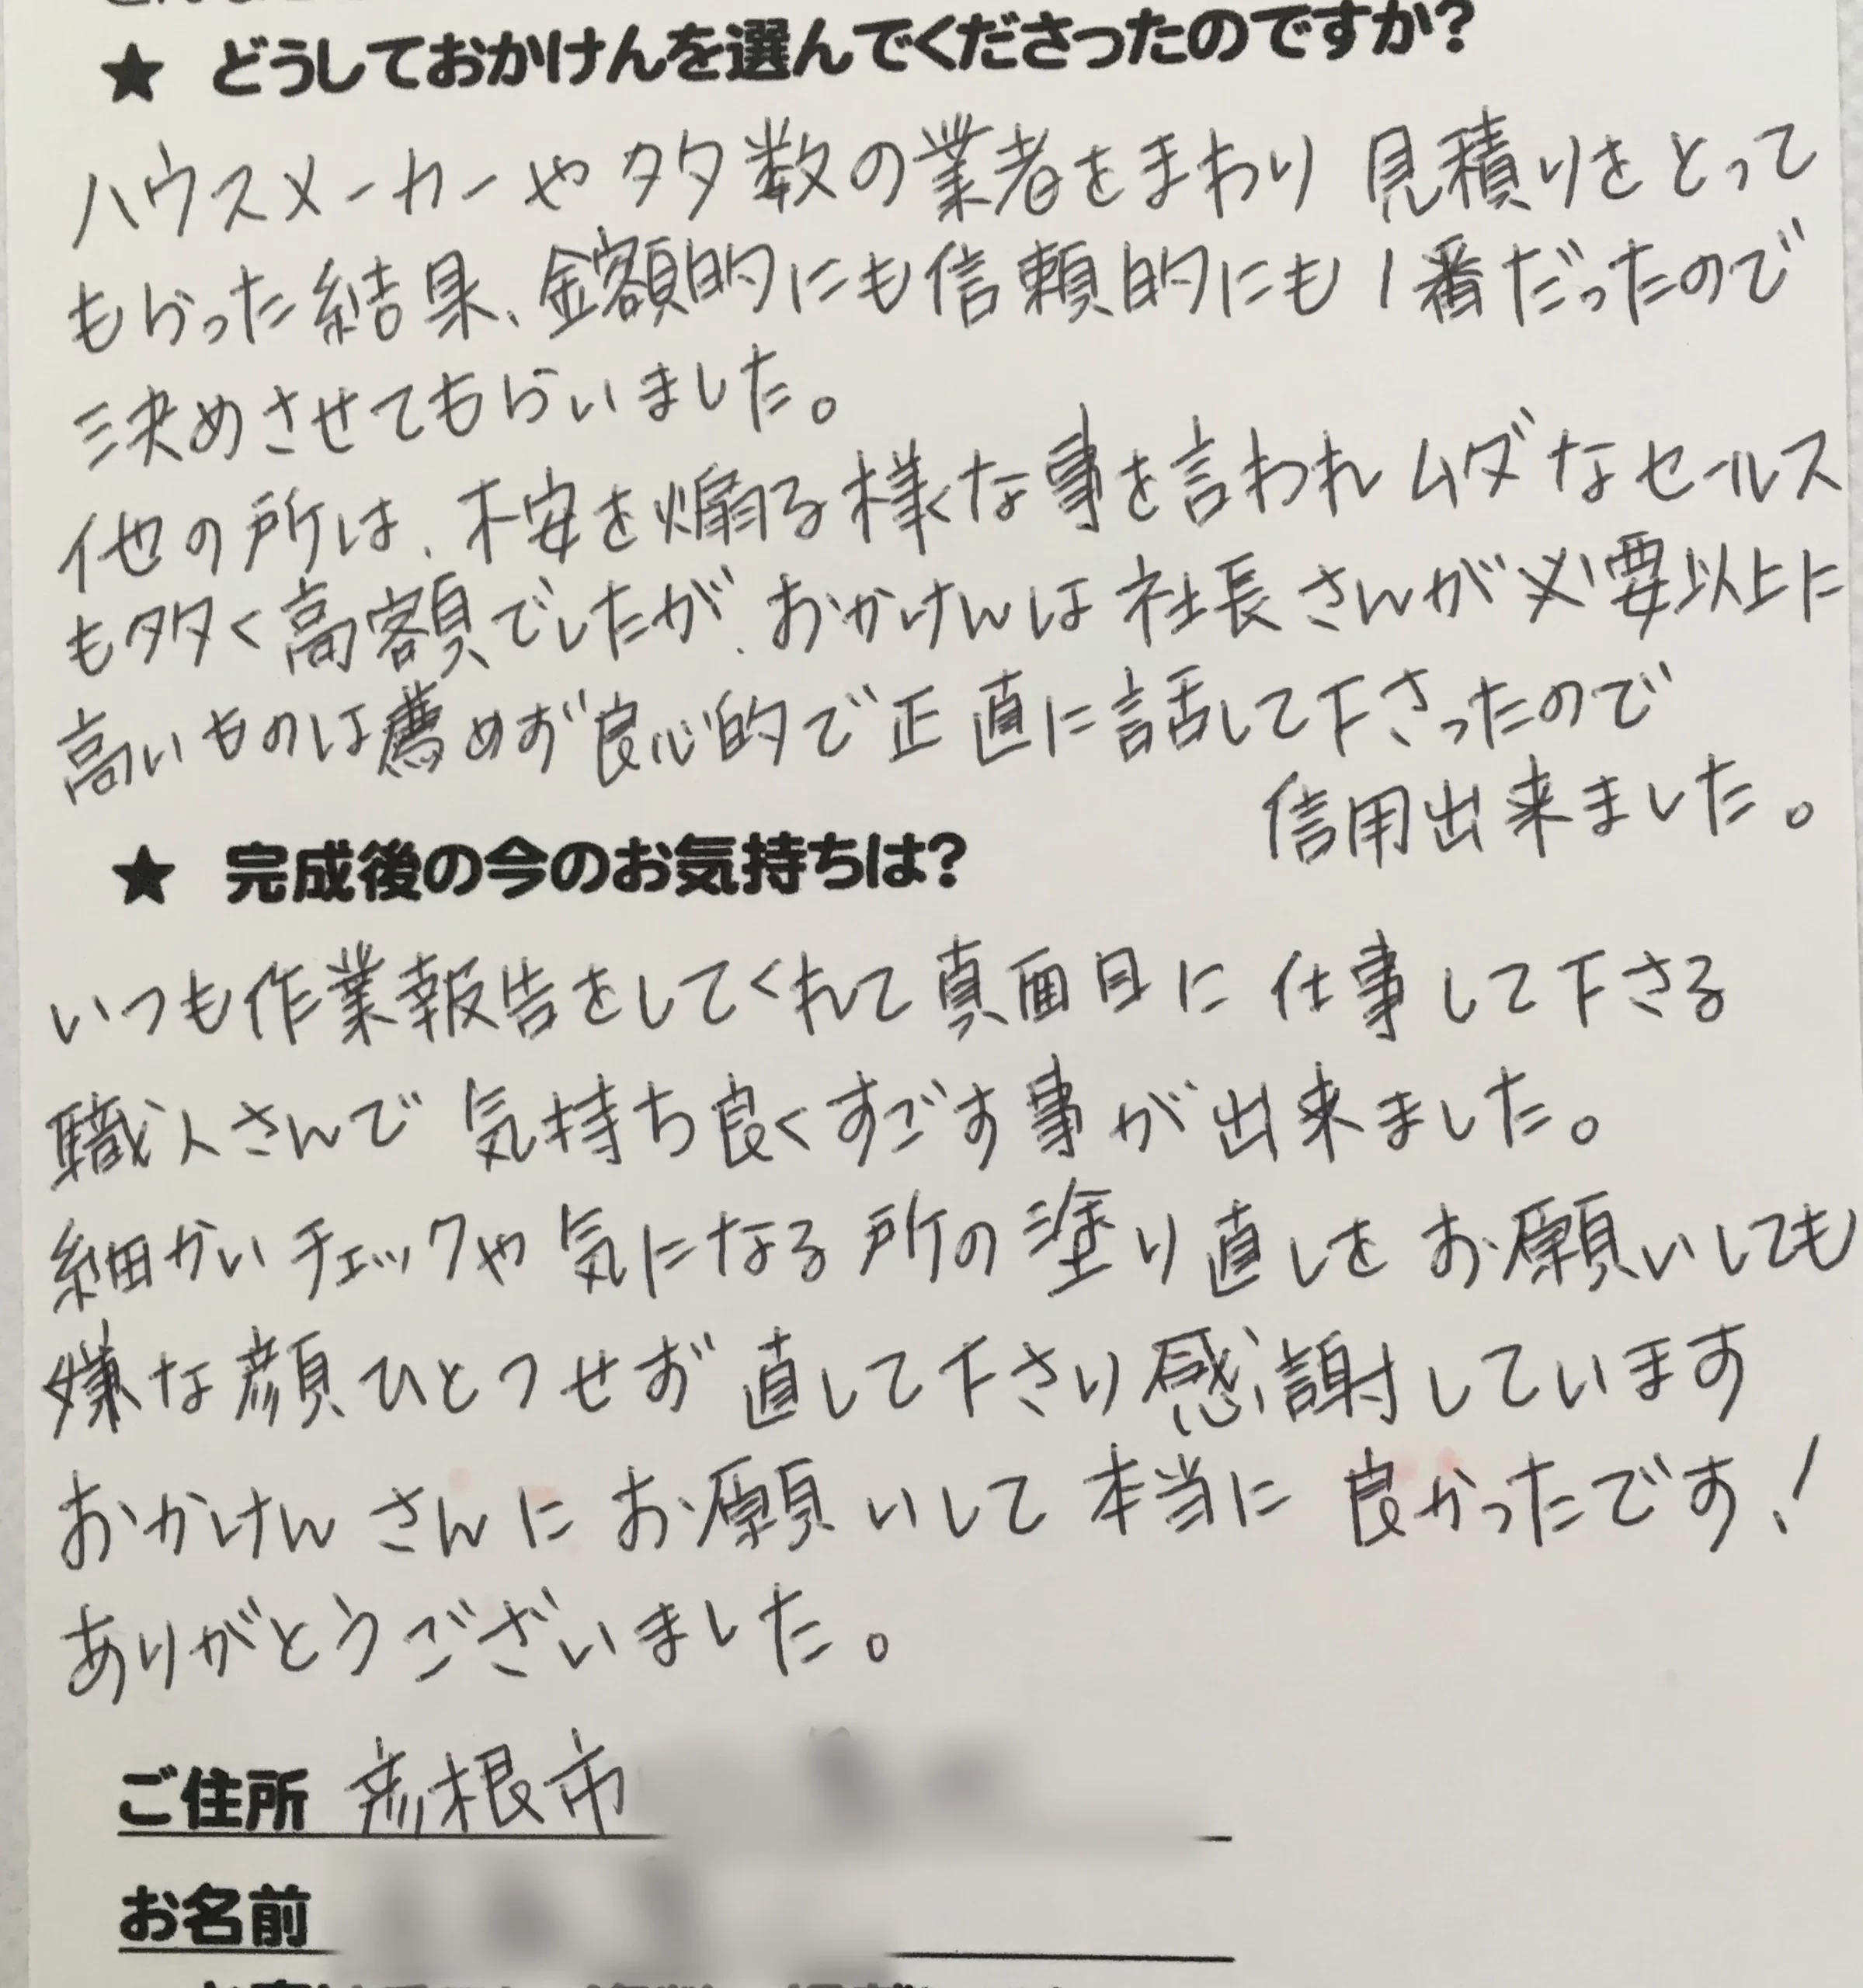 ★ どうしておかけんを選んでくださったのですか?
ハウスメーカーや多数の業者をまわり 見積りをとって
もらった結果、金額的にも信頼的にも1番だったので
決めさせてもらいました。
他の所は、不安を煽る様な事を言われムダなセールス
も多く高額でしたが、おかけんは社長さんが必要以上に
高いものは薦めず良心的で正直に話して下さったので
信用出来ました。
★ 完成後の今のお気持ちは?
いつも作業報告をしてくれて真面目に仕事して下さる
職人さんで気持ち良くすごす事が出来ました。
細かいチェックや気になる所の塗り直しをお願いしても
嫌な顔ひとつせず直して下さり感謝しています
おかけんさんにお願いして本当に良かったです!
ありがとうございました。
ご住所 彦根市
お名前